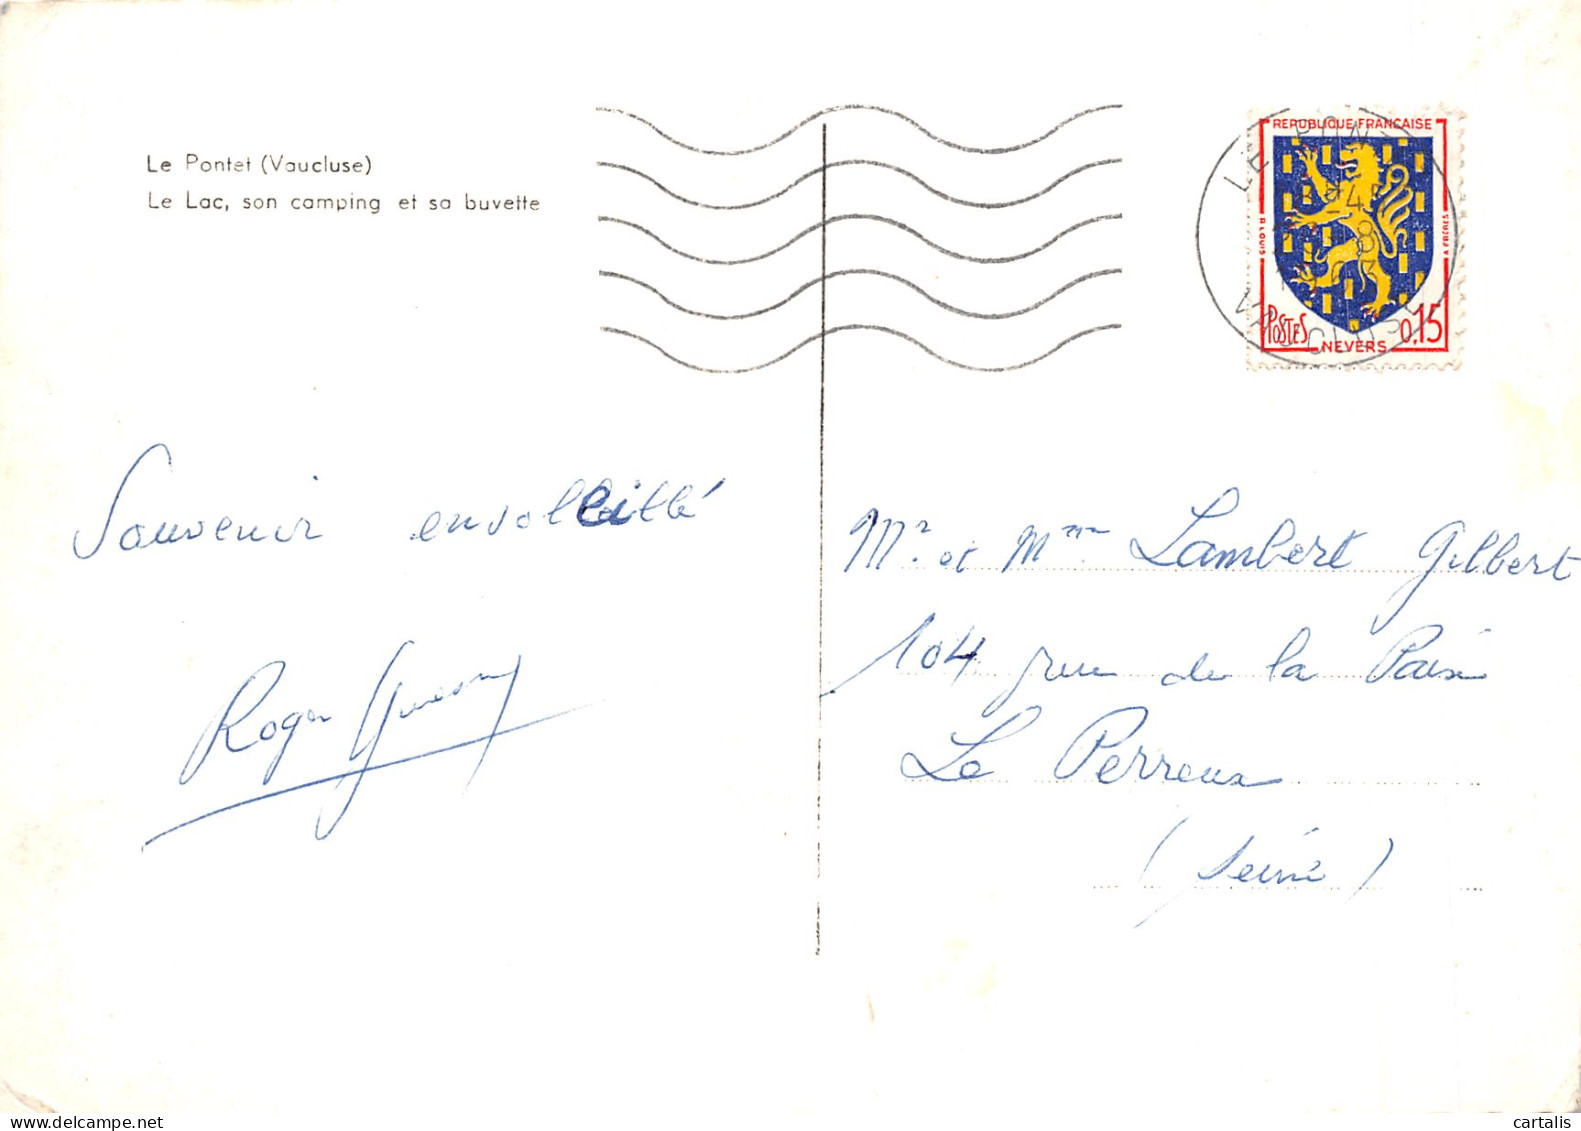 Le Pontet (Vaucluse)
Le Lac, son camping et sa buvette
REPUBLIQUE FRANCAISE
POSTES
0,15
NEVERS
LE PONT
VAUCLUSE
Souvenir ensoleillé
Roger
Mr. et Mme Lambert Gilbert
104 rue de la Paix
Le Perreux
(Seine)
cartalis